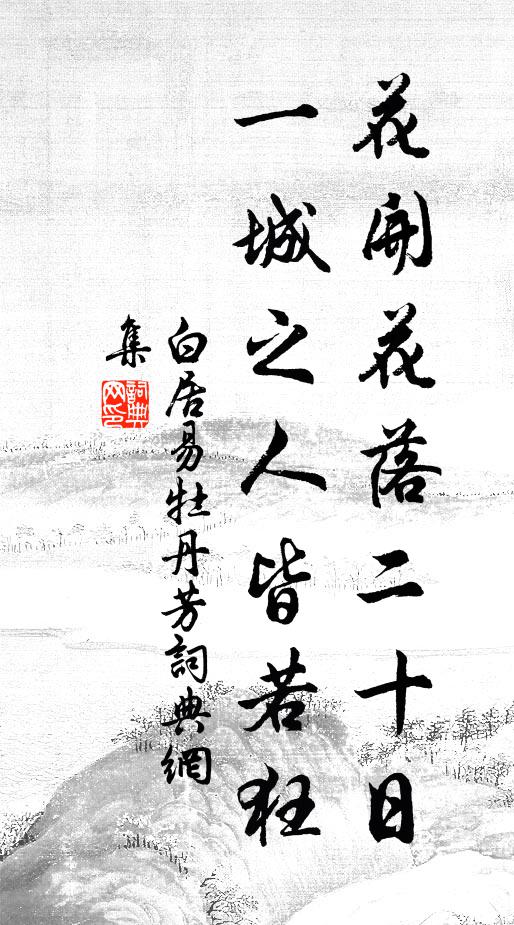 花開花落二十日
一城之人皆若狂
白居易牡丹芳詞典網
集
詞典
网印